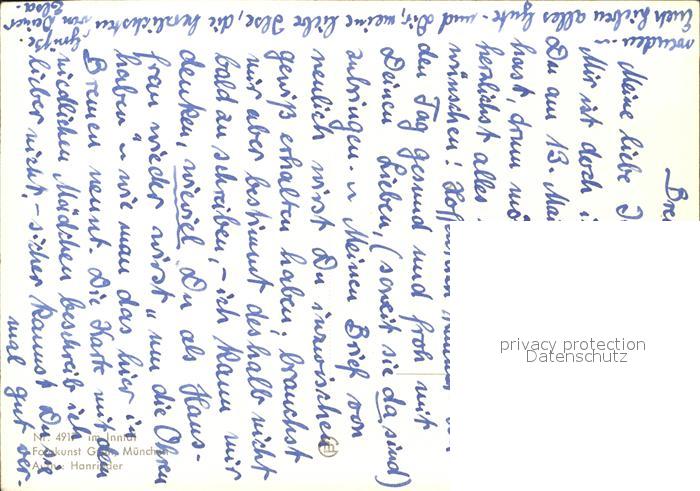 Bre
Meine liebe
Mir ist doch
Du am 13. Mai
hast, drum
herzlichst alles
wünschen!
den Tag gesund und froh mit
Deinen Lieben, (soweit sie da sind)
zubringen. - Meinen Brief von
neulich wirst Du inzwischen
gewiß erhalten haben; brauchst
mir aber bestimmt deshalb nicht
bald zu schreiben, - ich kann mir
denken, wieviel Du als Haus-
frau wieder wirst "um die Ohren
haben" - wie man das hier in
Bremen nennt. Die Karte mit den
niedlichen Mädchen beschreib ich
lieber nicht, - sicher kannst Du sie
mal gut ver-
wenden -
Euch Lieben alles Gute - und Dir, meine liebe Ilse, die herzlichsten
Grüße.
von Deiner
Elsa.
Nr. 491 im Inntal
Fotokunst Gr München
Aufn.: Hanrieder
privacy protection
Datenschutz